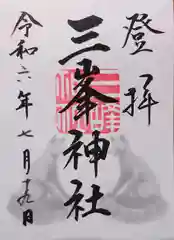 登拝
三峯神社
令和六年七月十九日